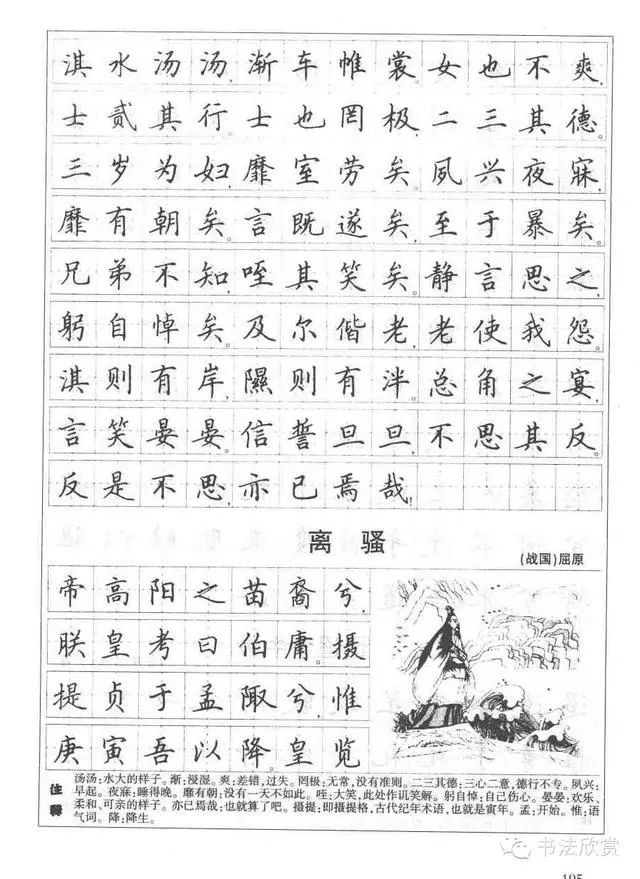 淇水汤汤,渐车帷裳。女也不爽,
士贰其行。士也罔极,二三其德。
三岁为妇,靡室劳矣。夙兴夜寐,
靡有朝矣。言既遂矣,至于暴矣。
兄弟不知,咥其笑矣。静言思之,
躬自悼矣。及尔偕老,老使我怨。
淇则有岸,隰则有泮。总角之宴,
言笑晏晏。信誓旦旦,不思其反。
反是不思,亦已焉哉!
离骚
(战国)屈原
帝高阳之苗裔兮,
朕皇考曰伯庸。摄
提贞于孟陬兮,惟
庚寅吾以降。皇览
注释
汤汤:水大的样子。渐:浸湿。爽:差错,过失。罔极:无常,没有准则。二三其德:三心二意,德行不专。夙兴:
早起。夜寐:睡得晚。靡有朝:没有一天不如此。咥:大笑,此处作讥笑解。躬自悼:自己伤心。晏晏:欢乐、
柔和、可亲的样子。亦已焉哉:也就算了吧。摄提:即摄提格,古代纪年术语,也就是寅年。孟:开始。惟:语
气词。降:降生。
书法欣赏
195